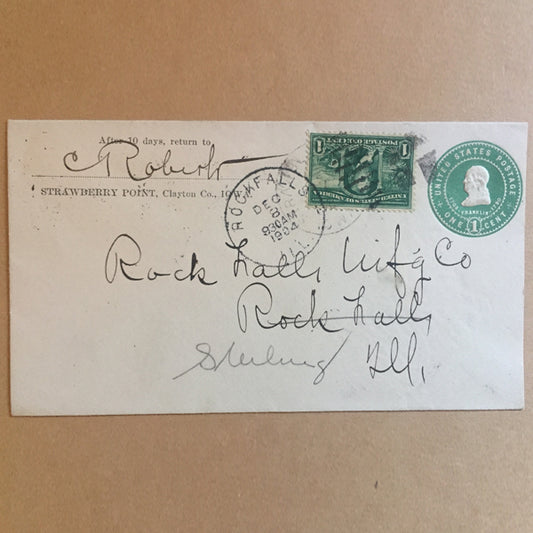 After 10 days, return to
C Roberts
STRAWBERRY POINT, Clayton Co., IOWA
ROCK FALLS
DEC
8
930AM
1904
ILL.
UNITED STATES OF AMERICA
POSTAGE ONE CENT
1 1
UNITED STATES POSTAGE
FRANKLIN
ONE 1 CENT
Rock Falls Mfg Co
Rock Falls
Sterling Ill.